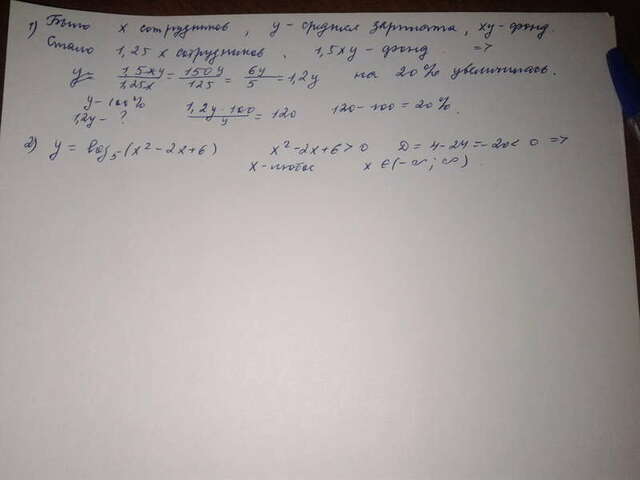 1) Было x сотрудников, y - средняя зарплата, xy - фонд.
Стало 1,25 x сотрудников. 1,5xy - фонд =>
y = 1,5xy/1,25x = 150y/125 = 6y/5 = 1,2y на 20% увеличилась.
y - 100%
1,2y - ? 1,2y·100/y = 120 120-100 = 20%.
2) y = log₅(x²-2x+6) x²-2x+6>0 D = 4-24=-20<0 =>
x - любое x ∈(-∞;∞).